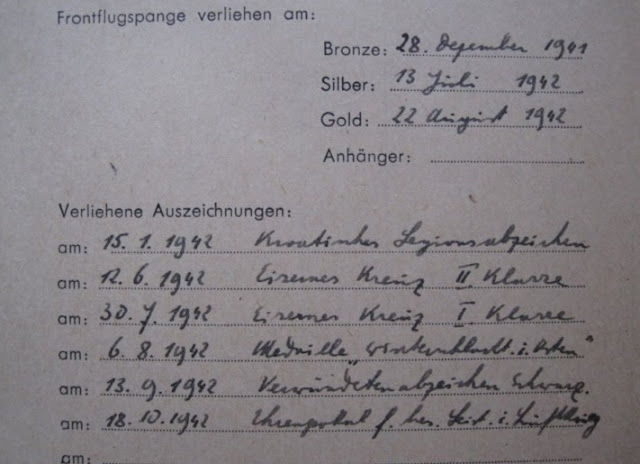 Frontflugspange verliehen am:
Bronze: 28. Dezember 1941
Silber: 13 Juli 1942
Gold: 22 August 1942
Anhänger:
Verliehene Auszeichnungen:
am: 15. 1. 1942 Kroatisches Legionsabzeichen
am: 12. 6. 1942 Eisernes Kreuz II Klasse
am: 30. 7. 1942 Eisernes Kreuz I Klasse
am: 6. 8. 1942 Medaille „Winterschlacht i. Osten"
am: 13. 9. 1942 Verwundetenabzeichen Schwarz.
am: 18. 10. 1942 Ehrenpokal f. bes. Leist. i. Luftkrieg
am: